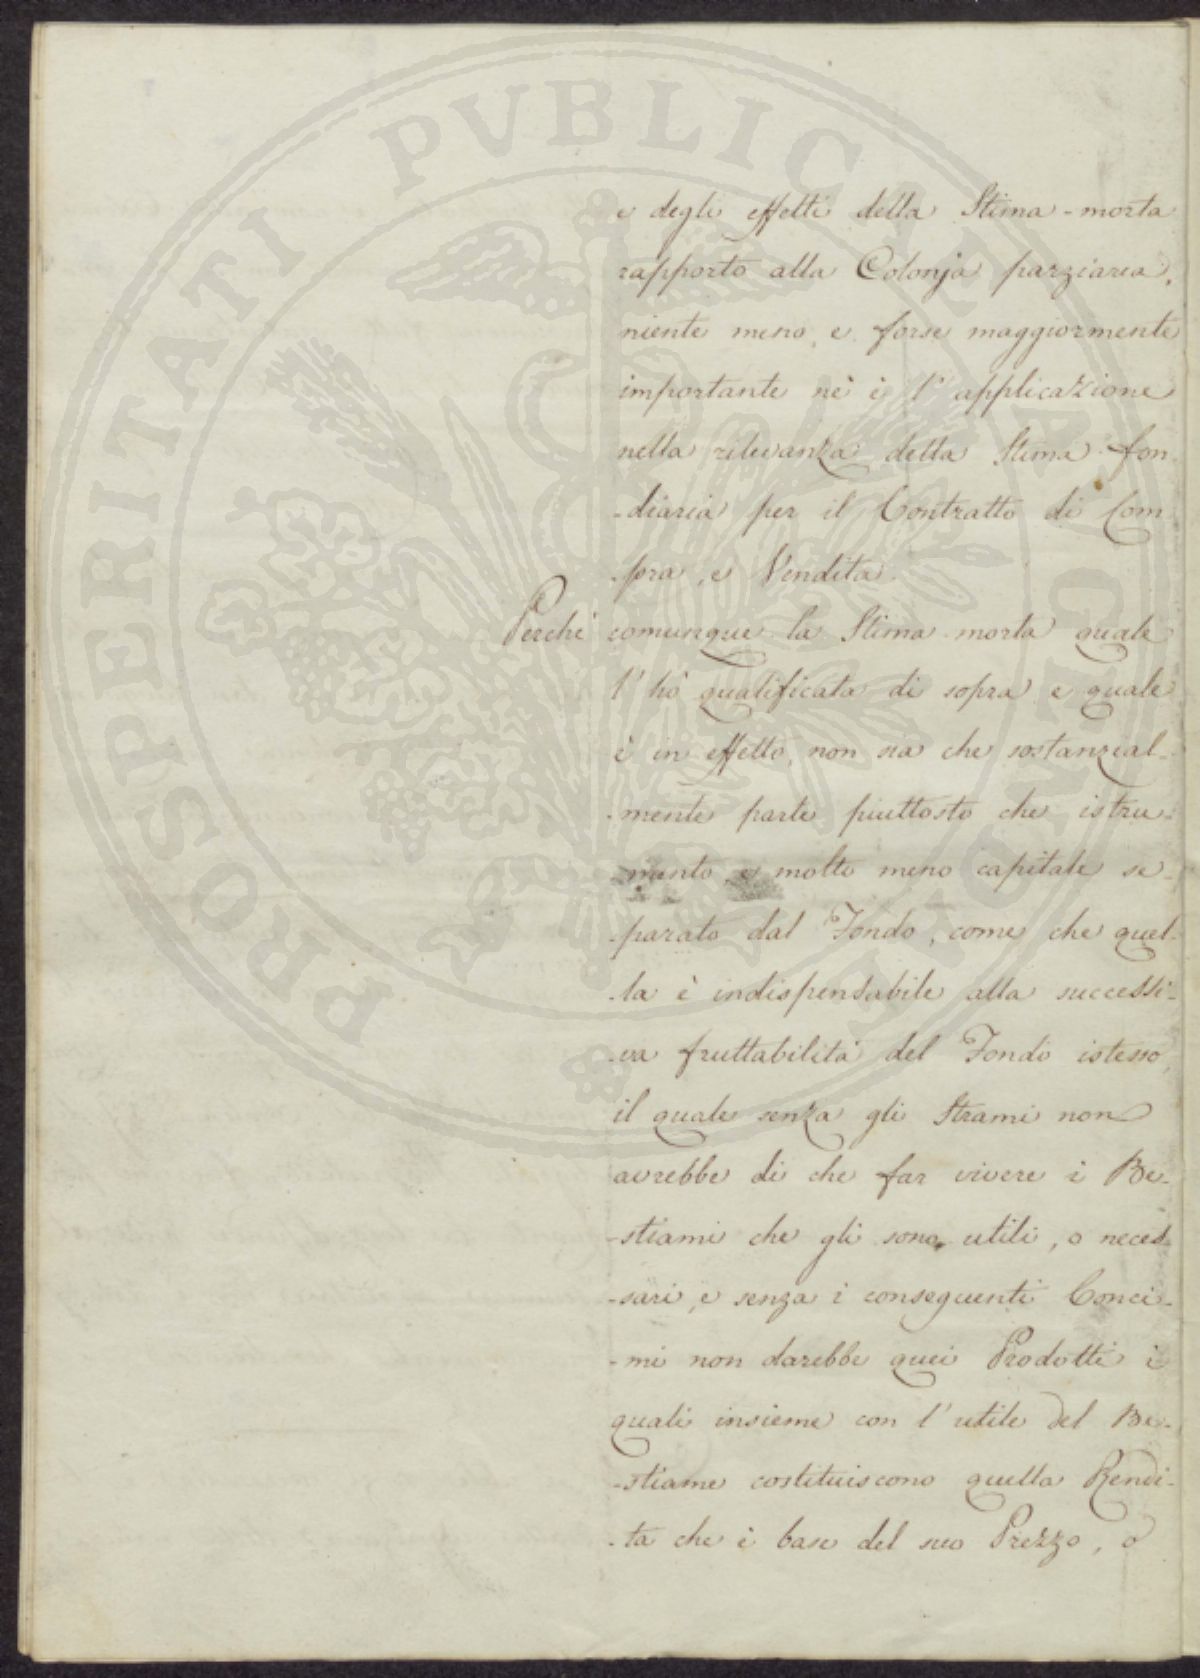 e degli effetti della Stima-morta
rapporto alla Colonja parziaria,
niente meno, e forse maggiormente
importante nè è l'applicazione
nella rilevanza della Stima fon-
-diaria per il Contratto di Com
-pra, e Vendita.
Perchè comunque la Stima morta quale
l'hò qualificata di sopra e quale
è in effetto, non sia che sostanzial-
-mente parte piuttosto che istru-
-mento, e molto meno capitale se-
-parato dal Fondo, come che quel-
-la è indispensabile alla successi-
-va fruttabilità del Fondo istesso,
il quale senza gli Strami non
avrebbe di che far vivere i Be-
-stiami che gli sono utili, o neces-
-sari, e senza i conseguenti Conci-
-mi non darebbe quei Prodotti i
quali insieme con l'utile del Be-
-stiame costituiscono quella Rendi-
-ta che è base del suo Prezzo, o
PROSPERITATI PVBLICAE AVGENDAE